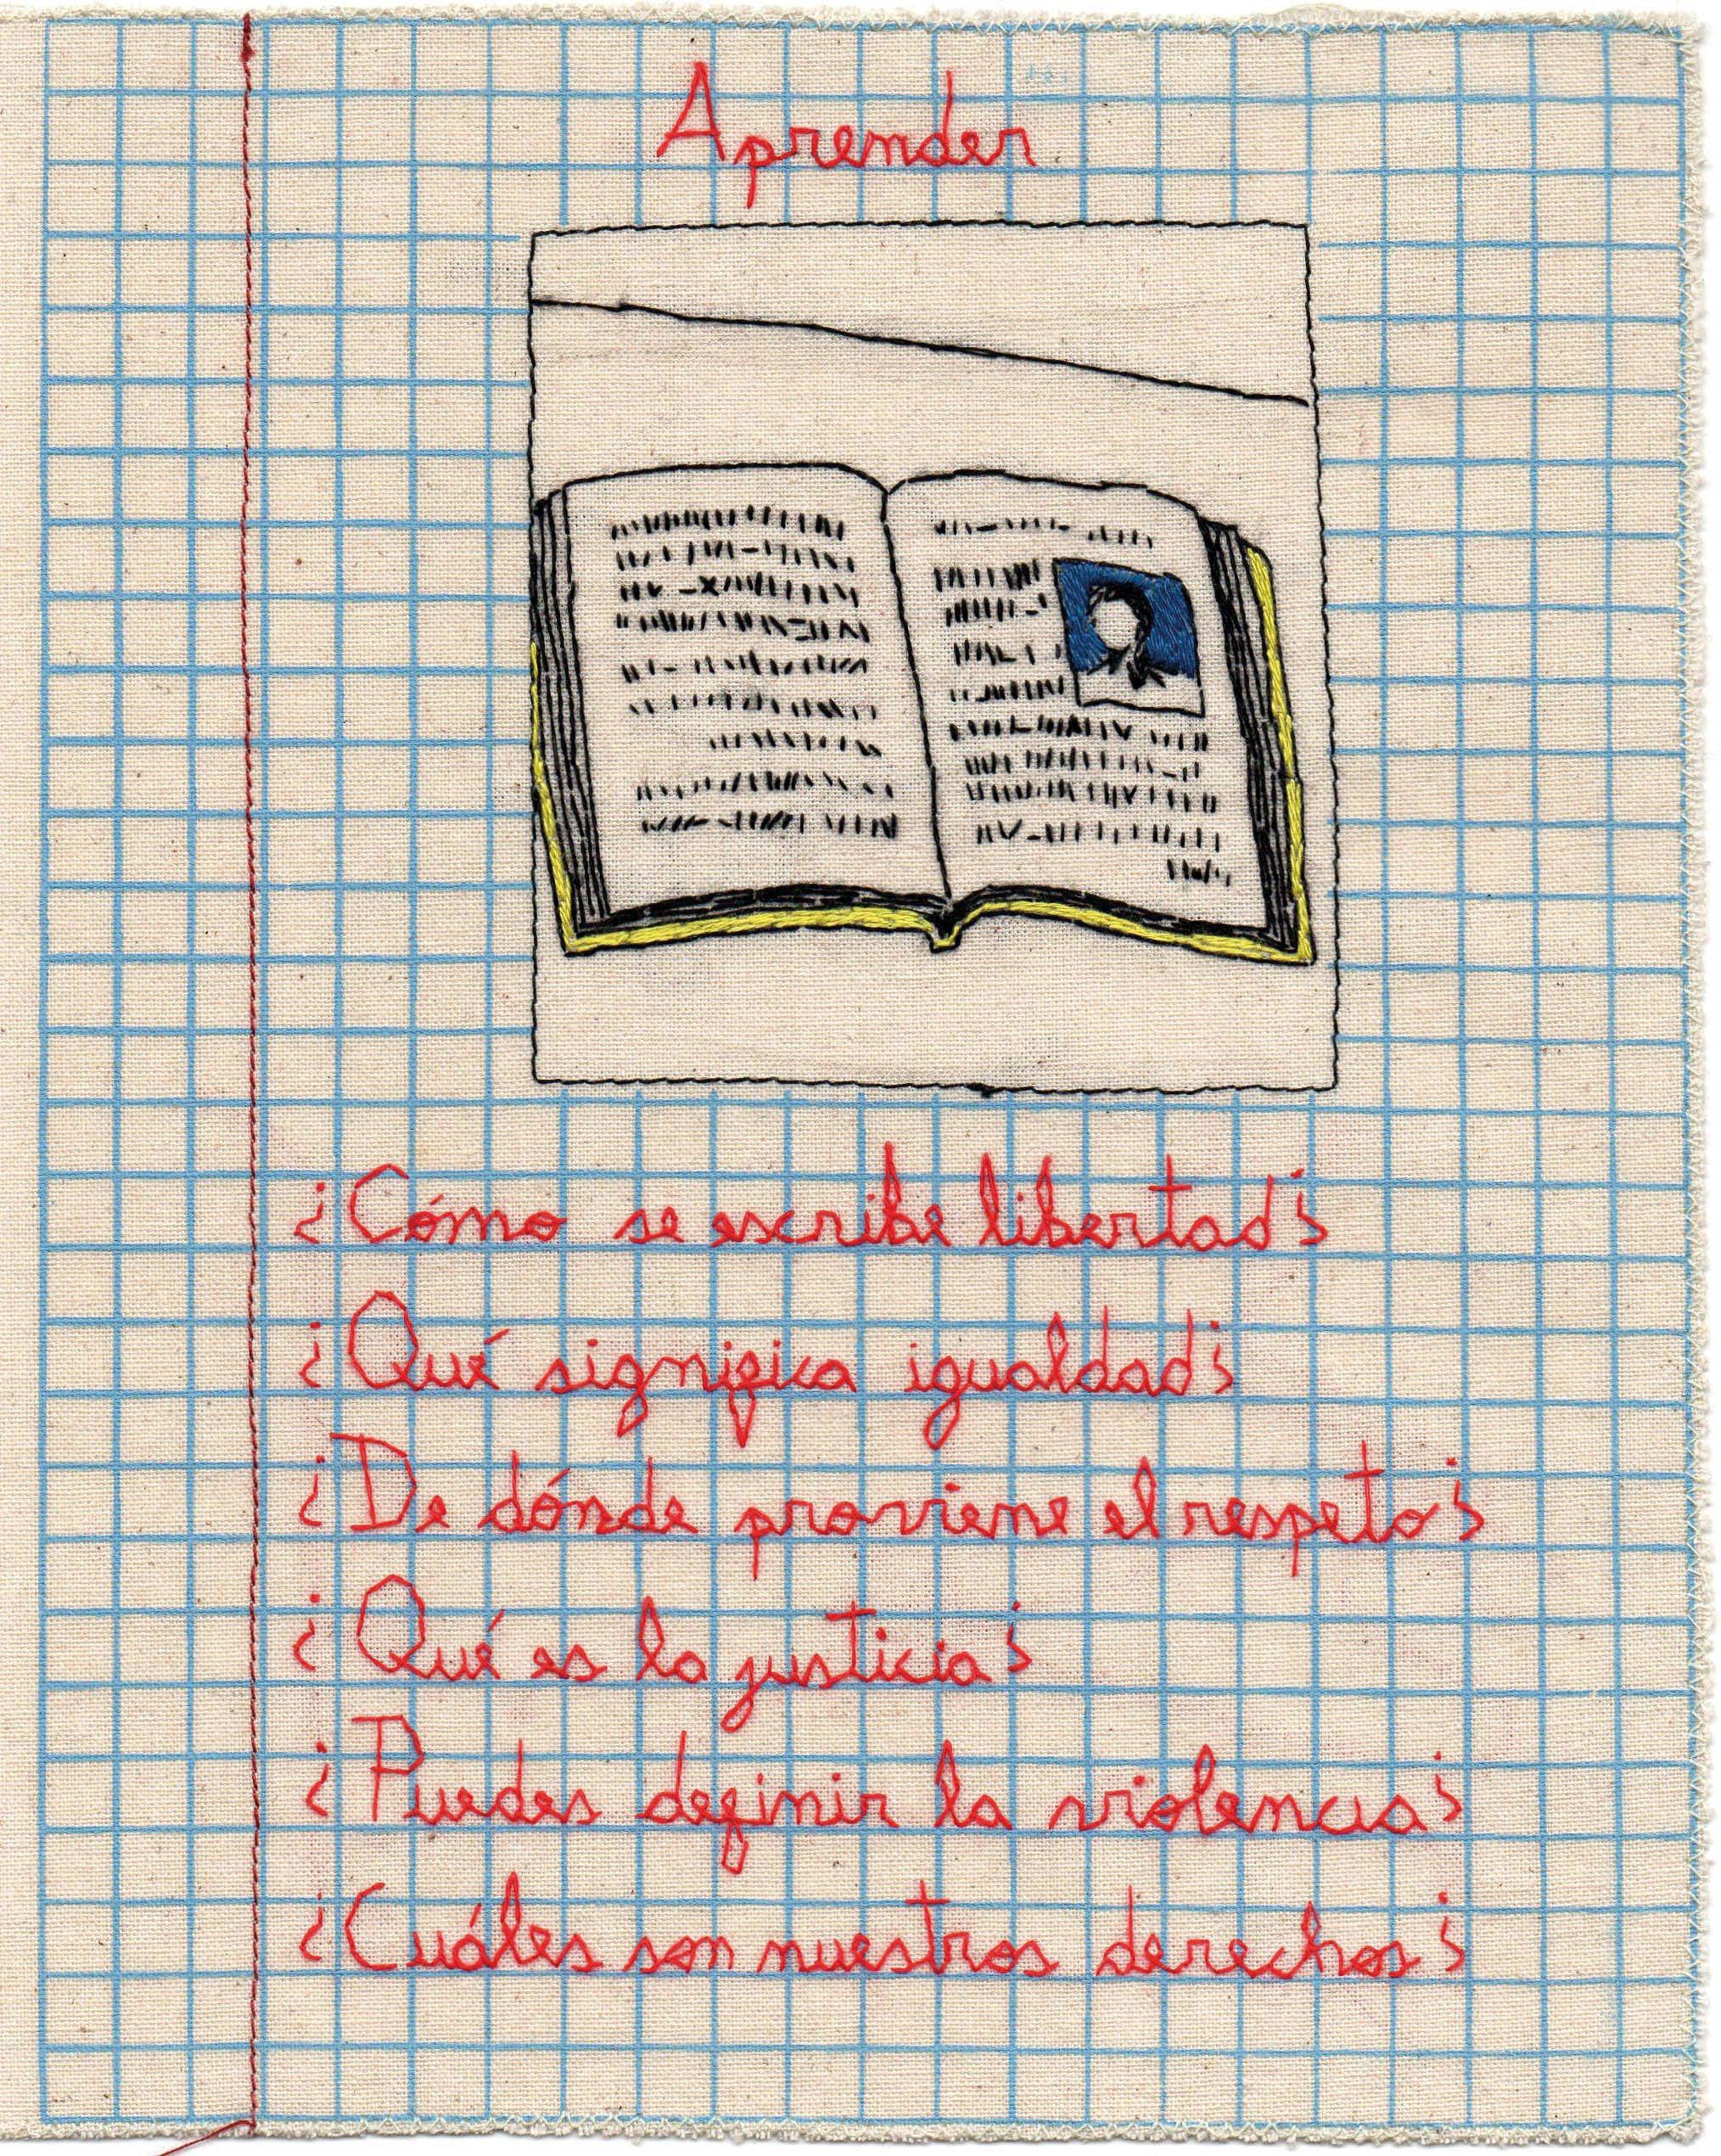 Aprender
¿Cómo se escribe libertad?
¿Qué significa igualdad?
¿De dónde proviene el respeto?
¿Qué es la justicia?
¿Puedes definir la violencia?
¿Cuáles son nuestros derechos?